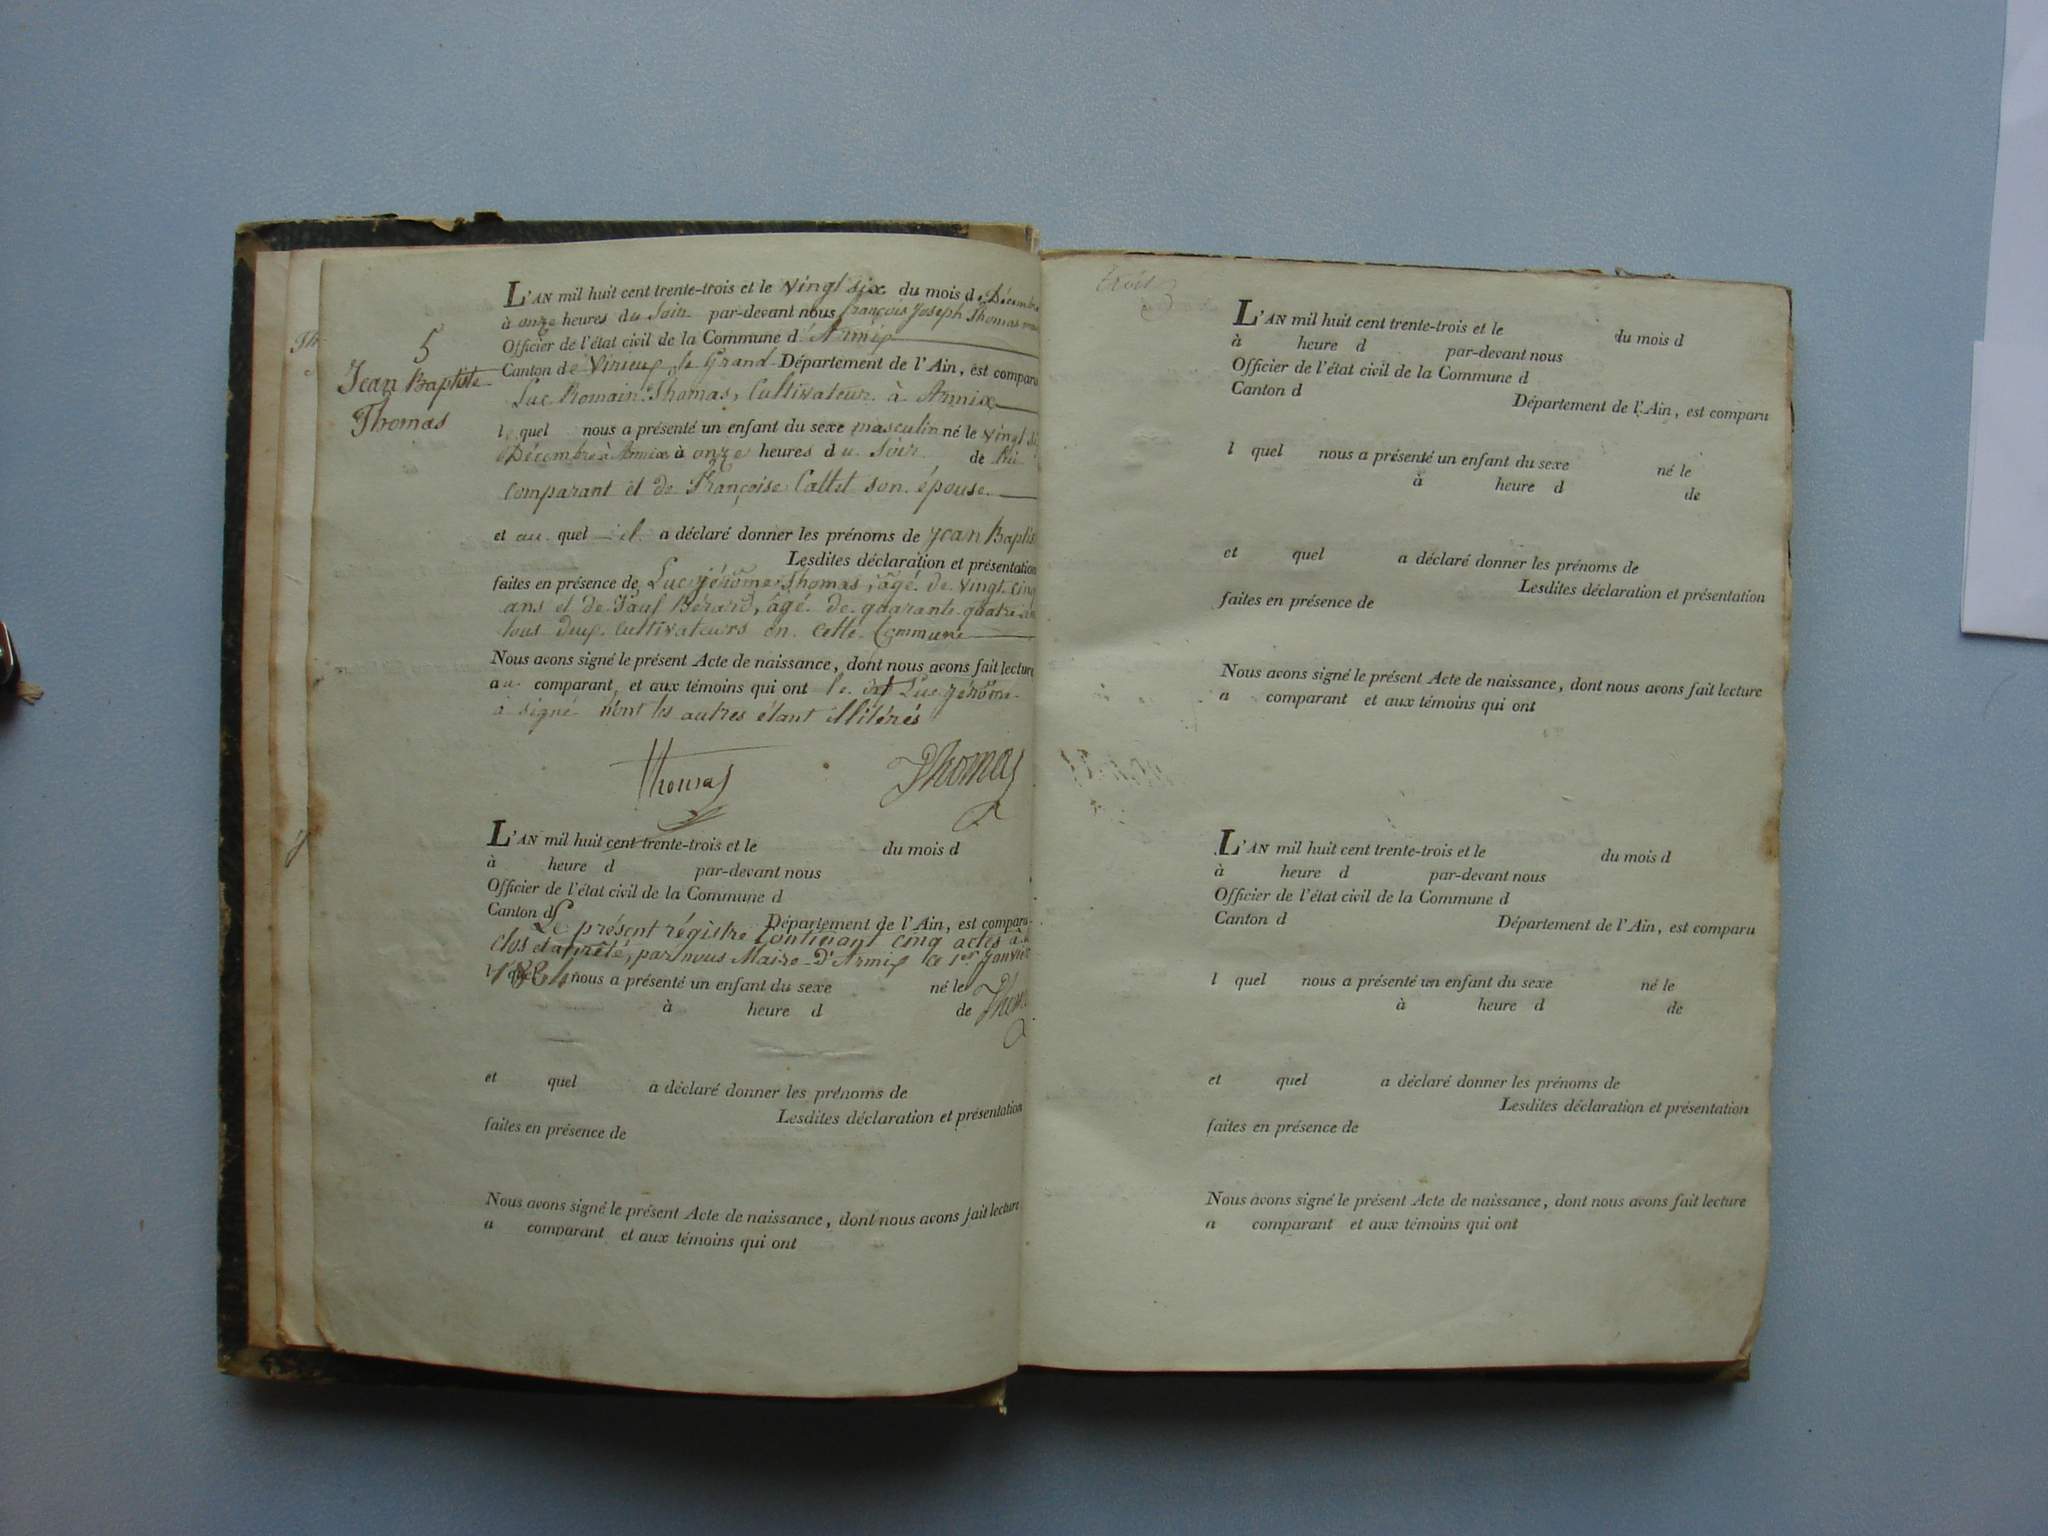 5
Jean Baptiste
Thomas
L'AN mil huit cent trente-trois et le vingt six du mois de Décembre
à onze heures du Soir par-devant nous françois Joseph Thomas
Officier de l'état civil de la Commune d'Armix
Canton de Virieux le Grand Département de l'Ain, est comparu
Luc Romain Thomas, Cultivateur à Armix
le quel nous a présenté un enfant du sexe masculin né le vingt six
Décembre à Armix à onze heures du Soir de lui
comparant et de Françoise Cattet son épouse
et au quel il a déclaré donner les prénoms de Jean Baptis
Lesdites déclaration et présentation
faites en présence de Luc jérôme Thomas, âgé de vingt cinq
ans et de Paul Bérard, âgé de quarante quatre ans
tous deux cultivateurs en cette Commune
Nous avons signé le présent Acte de naissance, dont nous avons fait lecture
au comparant et aux témoins qui ont le dit Luc jérôme
à signé non les autres étant illitérés
Thomas Thomas
L'AN mil huit cent trente-trois et le du mois d
à heure d par-devant nous
Officier de l'état civil de la Commune d
Canton d Département de l'Ain, est comparu
Le présent régistre Contenant cinq actes à été
clos et arrêté, par nous Maire d'Armix ce 1er Janvier
1834
l quel nous a présenté un enfant du sexe né le
à heure d de Thom
et quel a déclaré donner les prénoms de
Lesdites déclaration et présentation
faites en présence de
Nous avons signé le présent Acte de naissance, dont nous avons fait lecture
a comparant et aux témoins qui ont
trois
L'AN mil huit cent trente-trois et le du mois d
à heure d par-devant nous
Officier de l'état civil de la Commune d
Canton d Département de l'Ain, est comparu
l quel nous a présenté un enfant du sexe né le
à heure d de
et quel a déclaré donner les prénoms de
Lesdites déclaration et présentation
faites en présence de
Nous avons signé le présent Acte de naissance, dont nous avons fait lecture
a comparant et aux témoins qui ont
L'AN mil huit cent trente-trois et le du mois d
à heure d par-devant nous
Officier de l'état civil de la Commune d
Canton d Département de l'Ain, est comparu
l quel nous a présenté un enfant du sexe né le
à heure d de
et quel a déclaré donner les prénoms de
Lesdites déclaration et présentation
faites en présence de
Nous avons signé le présent Acte de naissance, dont nous avons fait lecture
a comparant et aux témoins qui ont